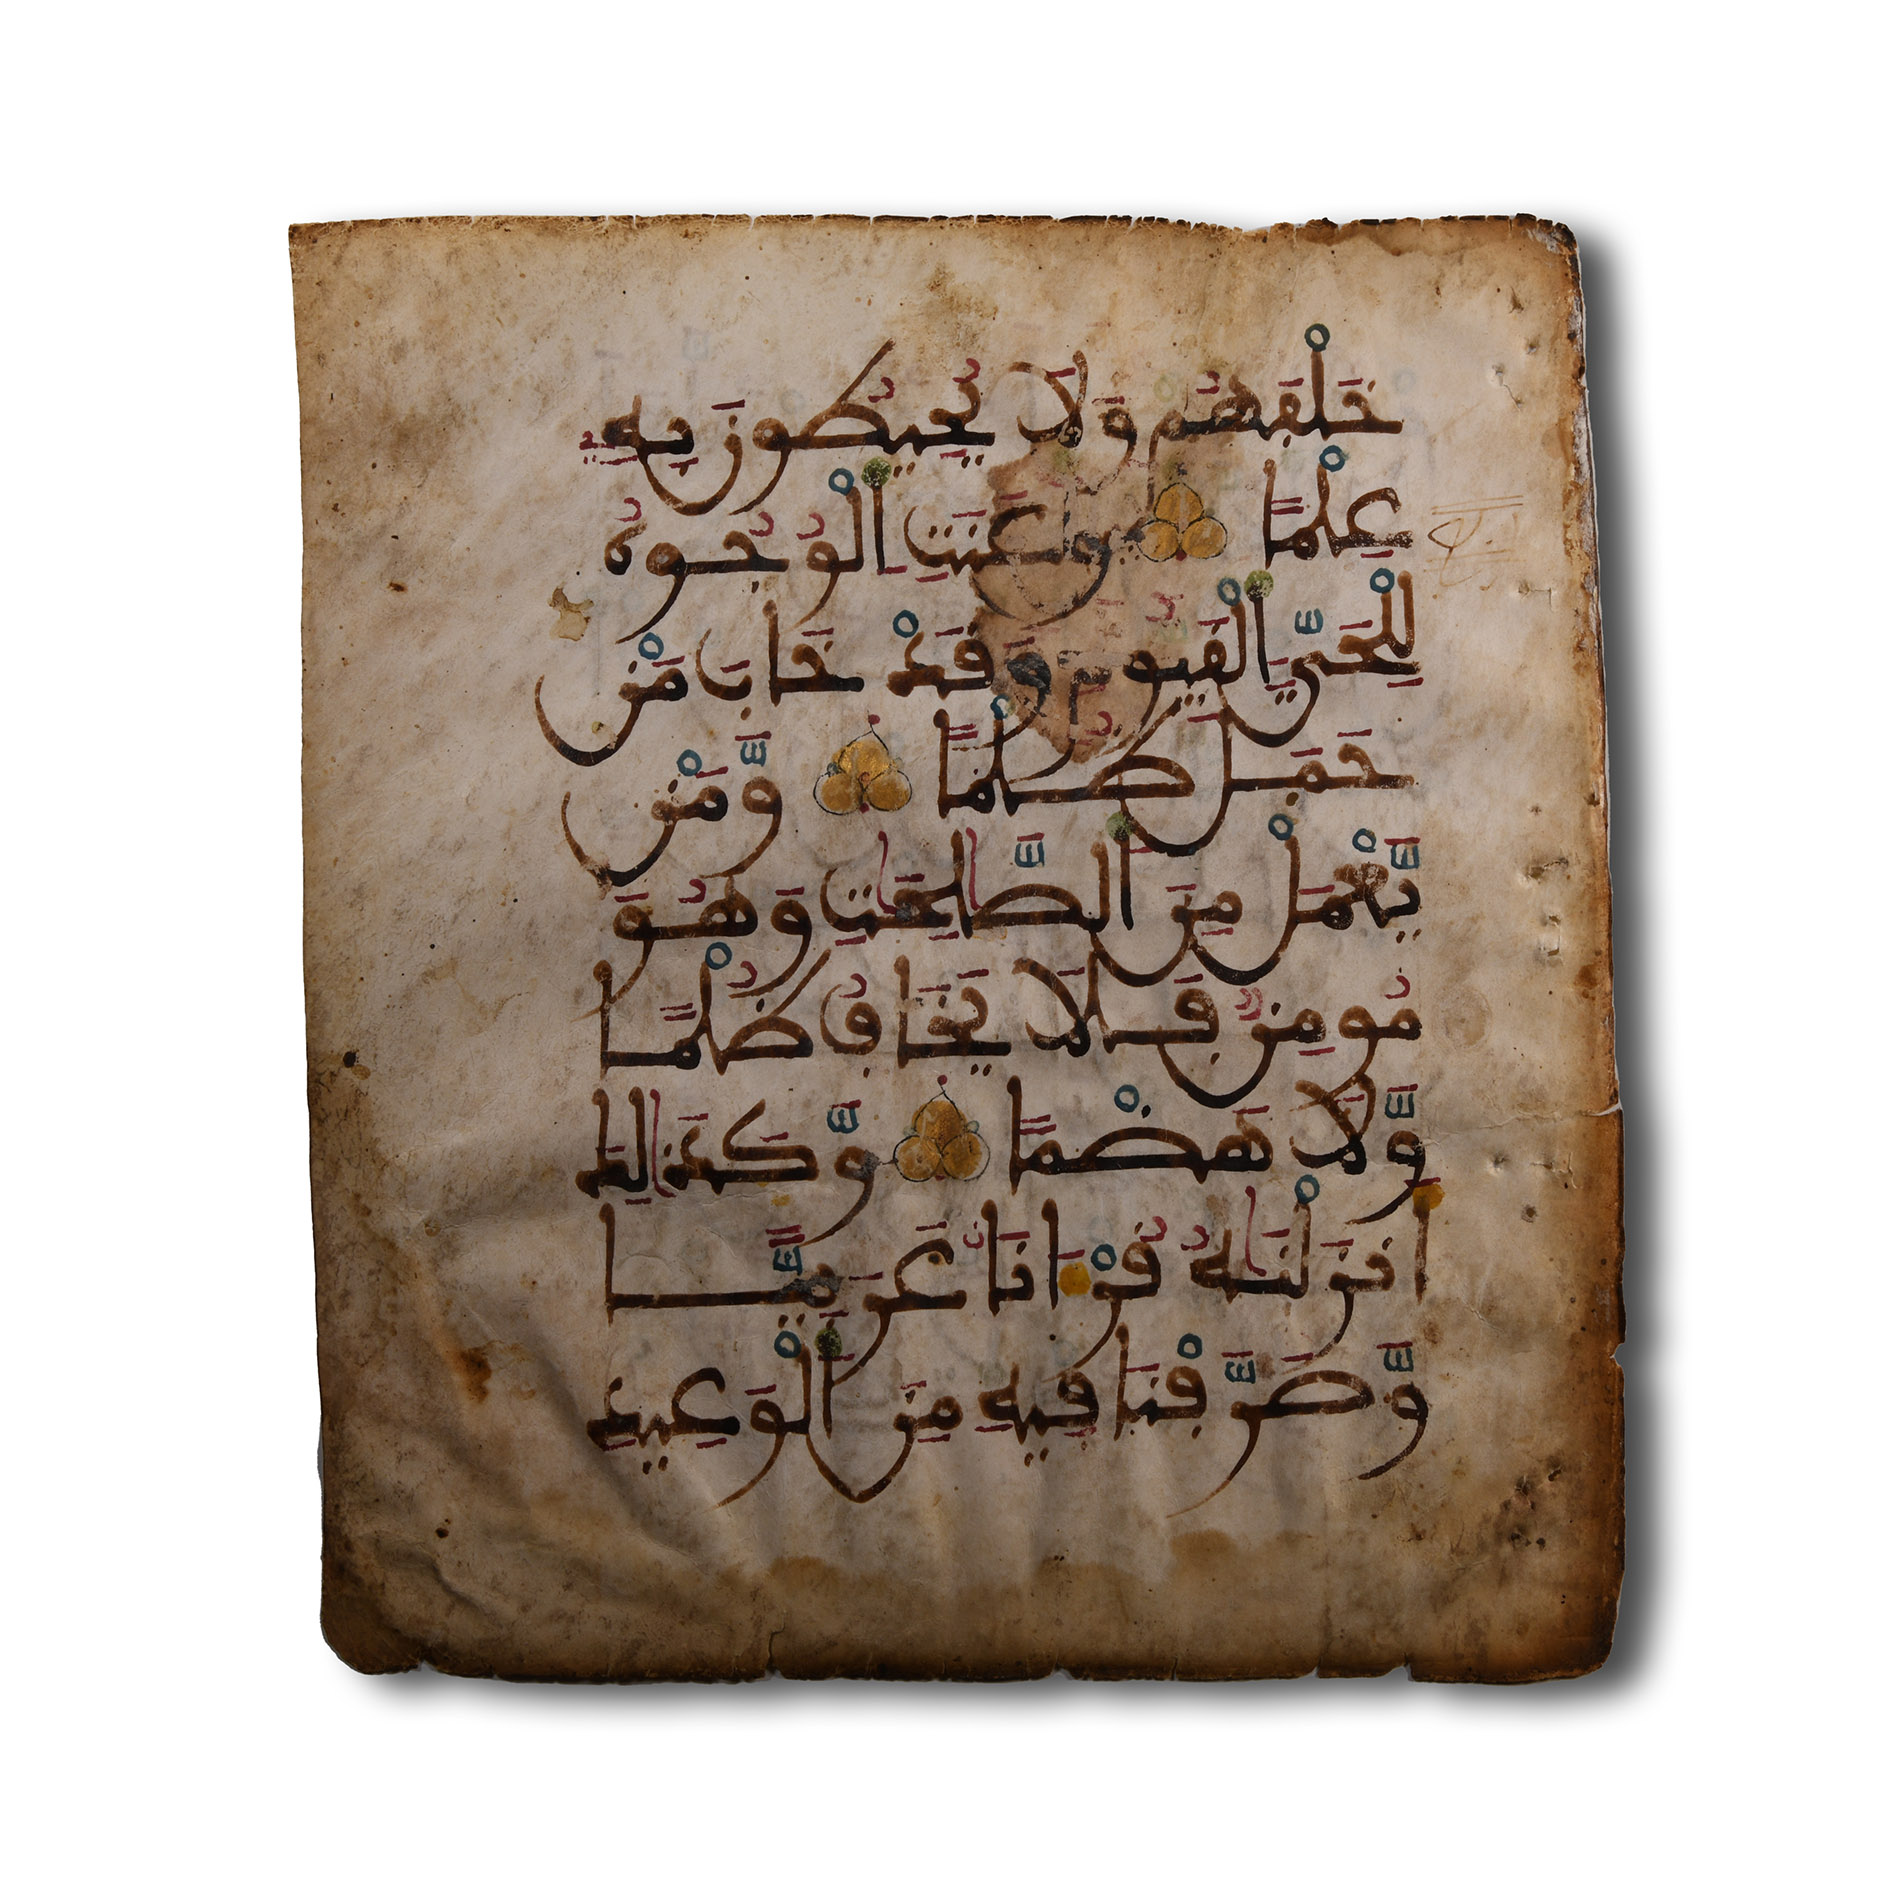 خَلْفَهُمْ وَلَا يُحِيطُونَ بِهِ
عِلْمًا وَعَنَتِ الْوُجُوهُ
لِلْحَيِّ الْقَيُّومِ وَقَدْ خَابَ مَنْ
حَمَلَ ظُلْمًا وَّمَنْ
يَّعْمَلْ مِنَ الصَّلِحَتِ وَهُوَ
مُومِنٌ فَلَا يَخَافُ ظُلْمًا
وَّلَا هَضْمًا وَّكَذَلِكَ
انزَلْنَهُ قُرْانًا عَرَبِيًّا
وَّصَرَّفْنَا فِيهِ مِنَ الْوَعِيدِ